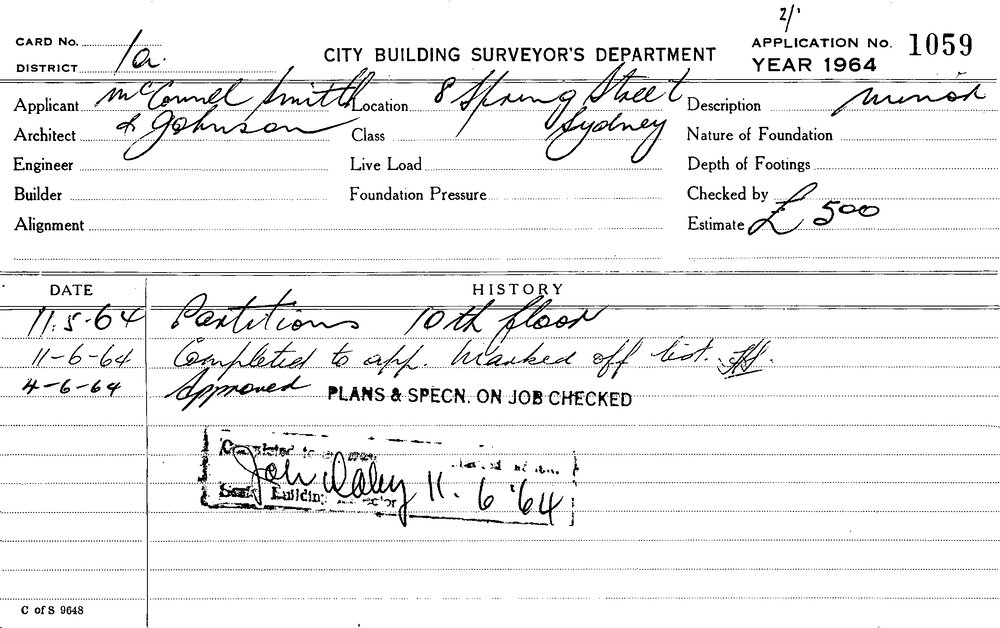 2/'
CARD No. 1a
CITY BUILDING SURVEYOR'S DEPARTMENT
APPLICATION No. 1059
DISTRICT
YEAR 1964
Applicant McConnel Smith
Location 8 Spring Street
Description minor
Architect & Johnson
Class Sydney
Nature of Foundation
Engineer
Live Load
Depth of Footings
Builder
Foundation Pressure
Checked by
Alignment
Estimate £ 500
DATE HISTORY
11.5.64 Partitions 10th floor
11-6-64 Completed to app. Marked off list.
4-6-64 Approved PLANS & SPECN. ON JOB CHECKED
Completed to
Building
11.6.'64
C of S 9648